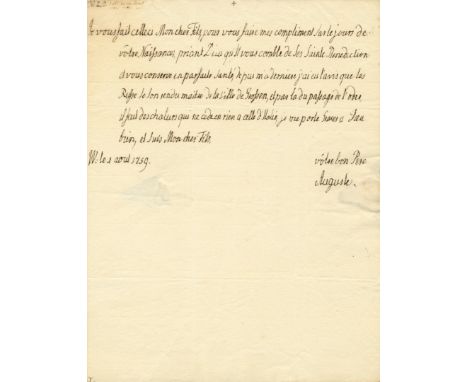 +
Je vous fait celle cy Mon cher Fils, pour vous faire mes compliment sur le jours de
vôtre Naissance, priant Dieu qu'il vous comble de ses Sainte Benediction
et vous conserve en parfaite Santé, depuis ma derniere j'ai eu l'avis que les
Russe se son rendu maitre de la Ville de Crossen, et par la du passage de l'oder,
il fait des chaleurs qui ne cedent en rien a celle d'
je vous porte
et suis Mon cher Fils
W: le 1 aout 1759.
vôtre bon Pere
Auguste.